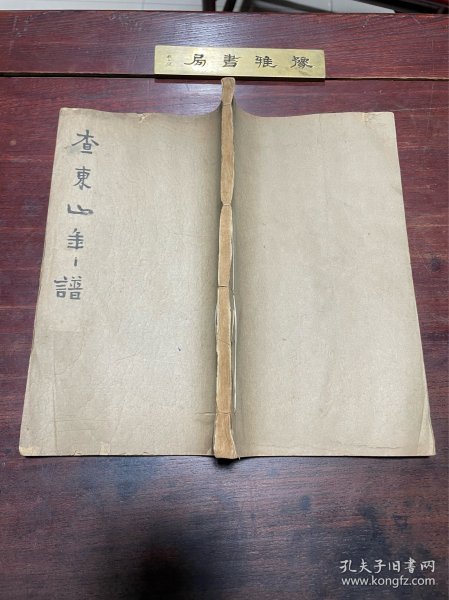 豫雅書局
查東山年譜
孔夫子旧书网
www.kongfz.com